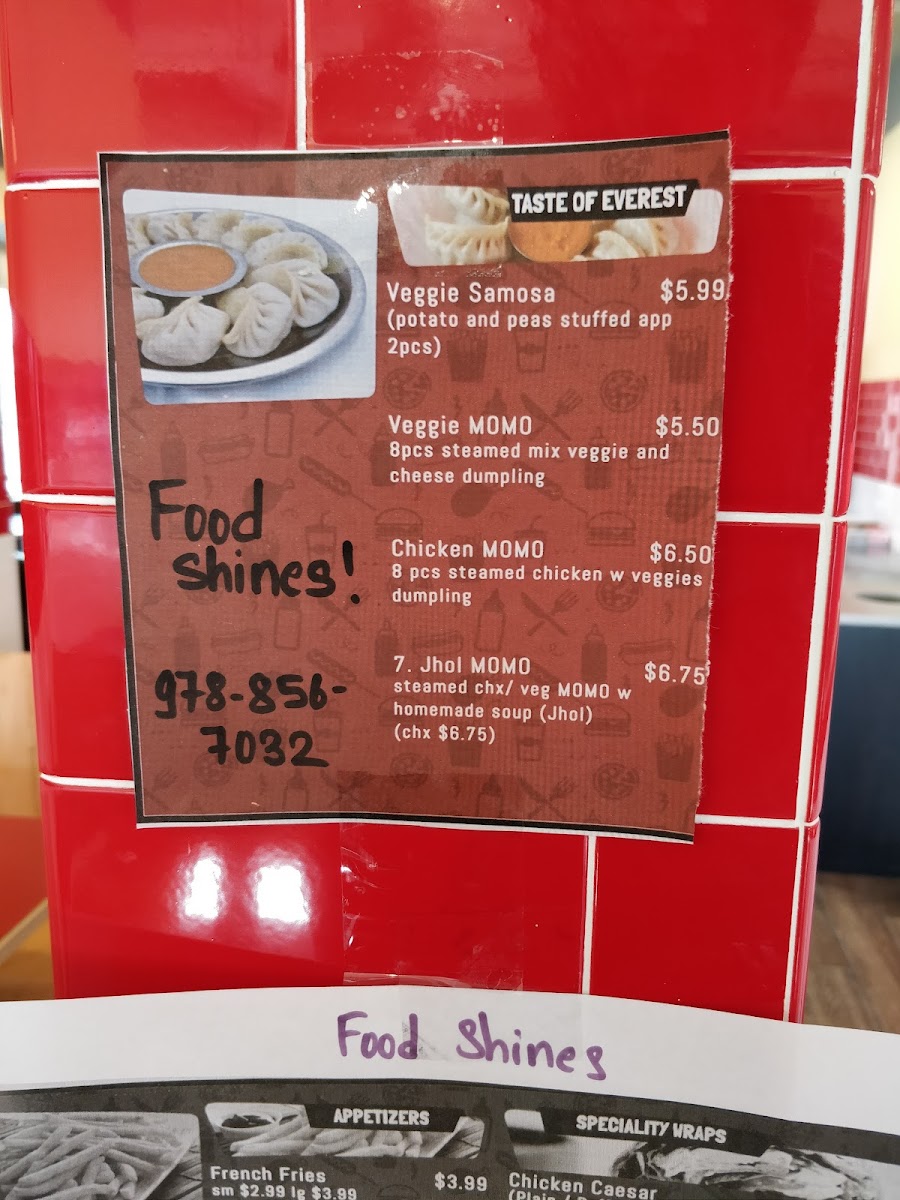 TASTE OF EVEREST
Veggie Samosa $5.99
(potato and peas stuffed app
2pcs)
Veggie MOMO $5.50
8pcs steamed mix veggie and
cheese dumpling
Chicken MOMO $6.50
8 pcs steamed chicken w veggies
dumpling
7. Jhol MOMO $6.75
steamed chx/ veg MOMO w
homemade soup (Jhol)
(chx $6.75)
Food
shines!
978-856-
7032
Food Shines
APPETIZERS
French Fries $3.99
sm $2.99 lg $3.99
SPECIALITY WRAPS
Chicken Caesar